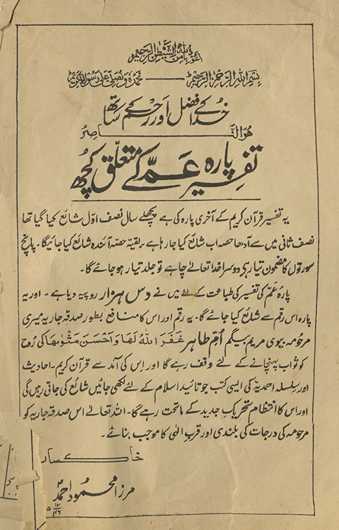 اعوذ باللہ من الشیطن الرجیم
بسم اللہ الرحمن الرحیم نحمدہ ونصلی علی رسولہ الکریم
خدا کے فضل اور رحم کے ساتھ
ھو الناصر
تفسیر پارہ عمّ کے متعلق کچھ
یہ تفسیر قرآن کریم کے آخری پارہ کی ہے پچھلے سال نصف اوّل شائع کیا گیا تھا
نصف ثانی میں سے آدھا حصہ اب شائع کیا جا رہا ہے۔ بقیہ حصہ آئندہ شائع کیا جائیگا۔ پانچ
سورتوں کا مضمون تیار کردہ ہے خدا تعالےٰ چاہے تو جلد تیار ہو جائے گا۔
پارہ عَمّ کی تفسیر کی طباعت کے لئے میں نے دس ہزار روپیہ دیا ہے۔ اور یہ
پارہ اس رقم سے شائع کیا جائے گا۔ یہ رقم اور اس کا منافع بطور صدقہ جاریہ میری
مرحومہ بیوی مریم بیگم اُمّ طاہر غَفَرَ اللّٰہُ لَهَا وَاَحْسَنَ مَثْوٰىهَا کی رُوح
کو ثواب پہنچانے کے لئے وقف رہے گا اور اِس کی آمد سے قرآن کریم۔ احادیث
اور سلسلہ احمدیہ کی ایسی کتب جو تائید اسلام کے لئے لکھی جائیں شائع کی جاتی رہیں گی
اور اس کا انتظام تحریک جدید کے ماتحت رہے گا۔ اللہ تعالےٰ اس صدقہ جاریہ کو
مرحومہ کی درجات کی بلندی اور قرب الٰہی کا موجب بنائے۔
خاکسار
مرزا محمود احمد